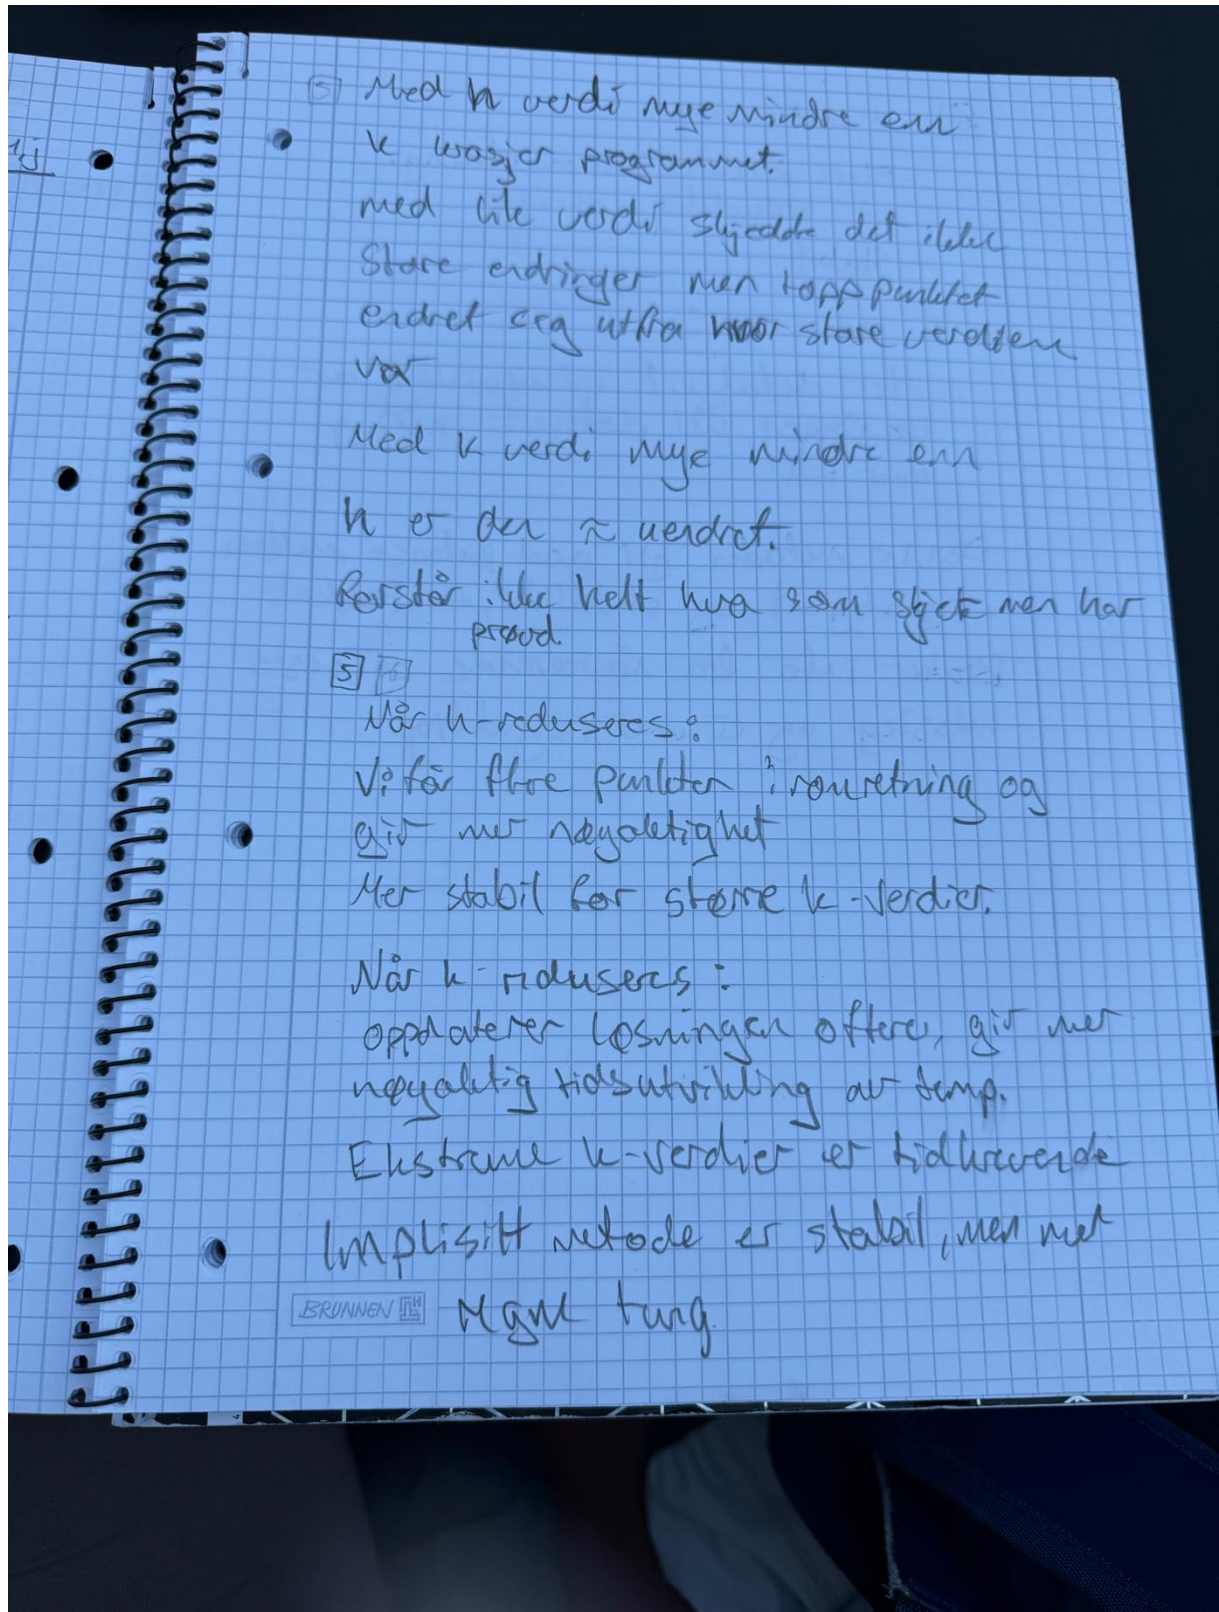 1j
5 Med h verdi mye mindre enn
k krasjer programmet.
med lik verdi skjedde det ikke
Store endringer men topppunktet
endret seg utfra hvor store verdiene
var
Med k verdi mye mindre enn
h er den ≈ uendret.
Forstår ikke helt hva som skjer men har
prøvd.
5
Når h-reduseres:
Vi får flere punkter i romretning og
gir mer nøyaktighet
Mer stabil for større k-verdier.
Når k-reduseres:
oppdaterer løsningen oftere, gir mer
nøyaktig tidsutvikling av temp.
Ekstreme k-verdier er tidkrevende
Implisitt metode er stabil, men mer
regne tung.
BRUNNEN